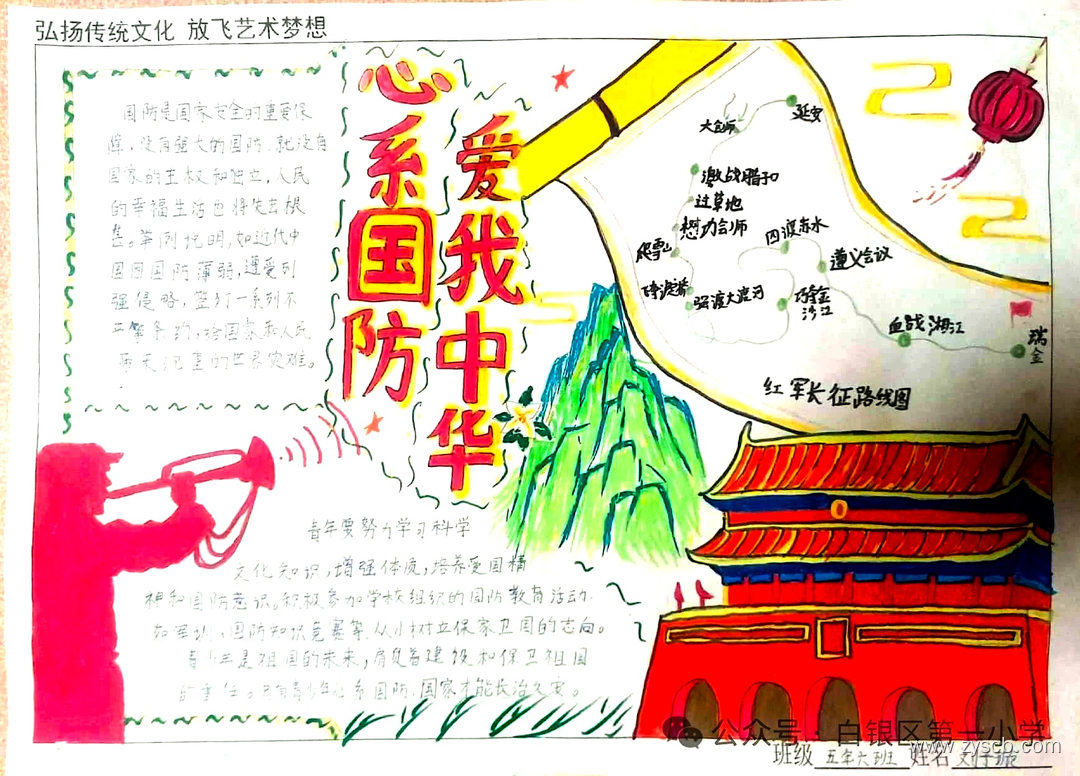 弘扬传统文化 放飞艺术梦想
心系国防
爱我中华
国防是国家安全的重要保
障，没有强大的国防，就没有
国家的主权和独立，人民
的幸福生活也将失去根
基。举例说明，如近代中
国因国防薄弱，遭受列
强侵略，签订一系列不
平等条约，给国家和人民
带来
灾难。
大会师
延安
激战腊子口
过草地
懋功会师
爬雪山
飞夺泸定桥
强渡大渡河
四渡赤水
遵义会议
巧渡金
沙江
血战湘江
瑞
金
红军长征路线图
青年要努力学习科学
文化知识，增强体质，培养爱国精
神和国防意识。积极参加学校组织的国防教育活动，
如军训、国防知识竞赛等，从小树立保家卫国的志向。
青少年是祖国的未来，肩负着建设和保卫祖国
的重任。只有青少年心系国防，国家才能长治久安。
公众号·白银区第一小学
www.zyscb.com
班级 五年六班 姓名